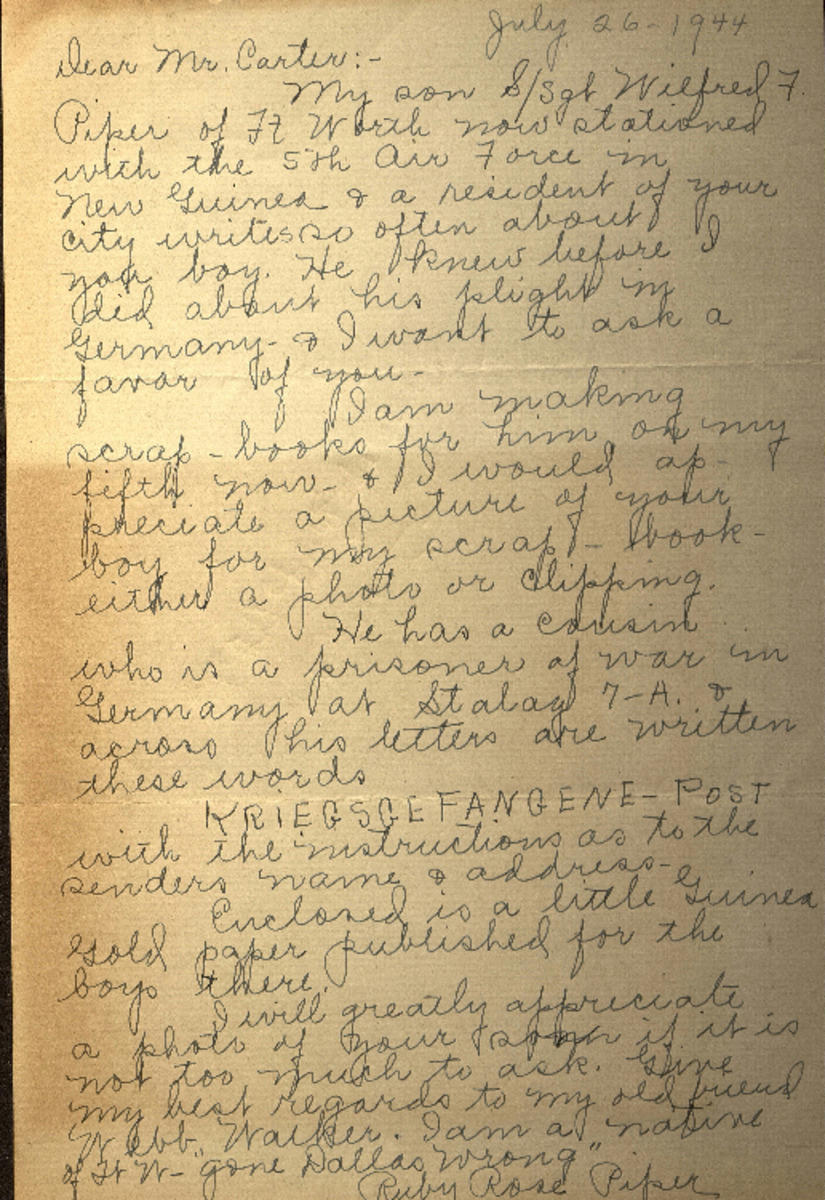 July 26-1944
Dear Mr. Carter:-
My son S/Sgt Wilfred F.
Piper of Ft Worth now stationed
with the 5th Air Force in
New Guinea & a resident of your
city writes so often about
your boy. He knew before I
did about his plight in
Germany- & I want to ask a
favor of you-
I am making
scrap-books for him on my
fifth now- & I would ap-
preciate a picture of your
boy for my scrap-book-
either a photo or clipping.
He has a cousin
who is a prisoner of war in
Germany at Stalag 7-A. &
across his letters are written
these words
KRIEGSGEFANGENE-POST
with the instructions as to the
senders name & address-
Enclosed is a little Guinea
Gold paper published for the
boys there.
I will greatly appreciate
a photo of your son if it is
not too much to ask. Give
my best regards to my old friend
Webb Walker. I am a native
of Ft W- "gone Dallas Wrong"
Ruby Rose Piper